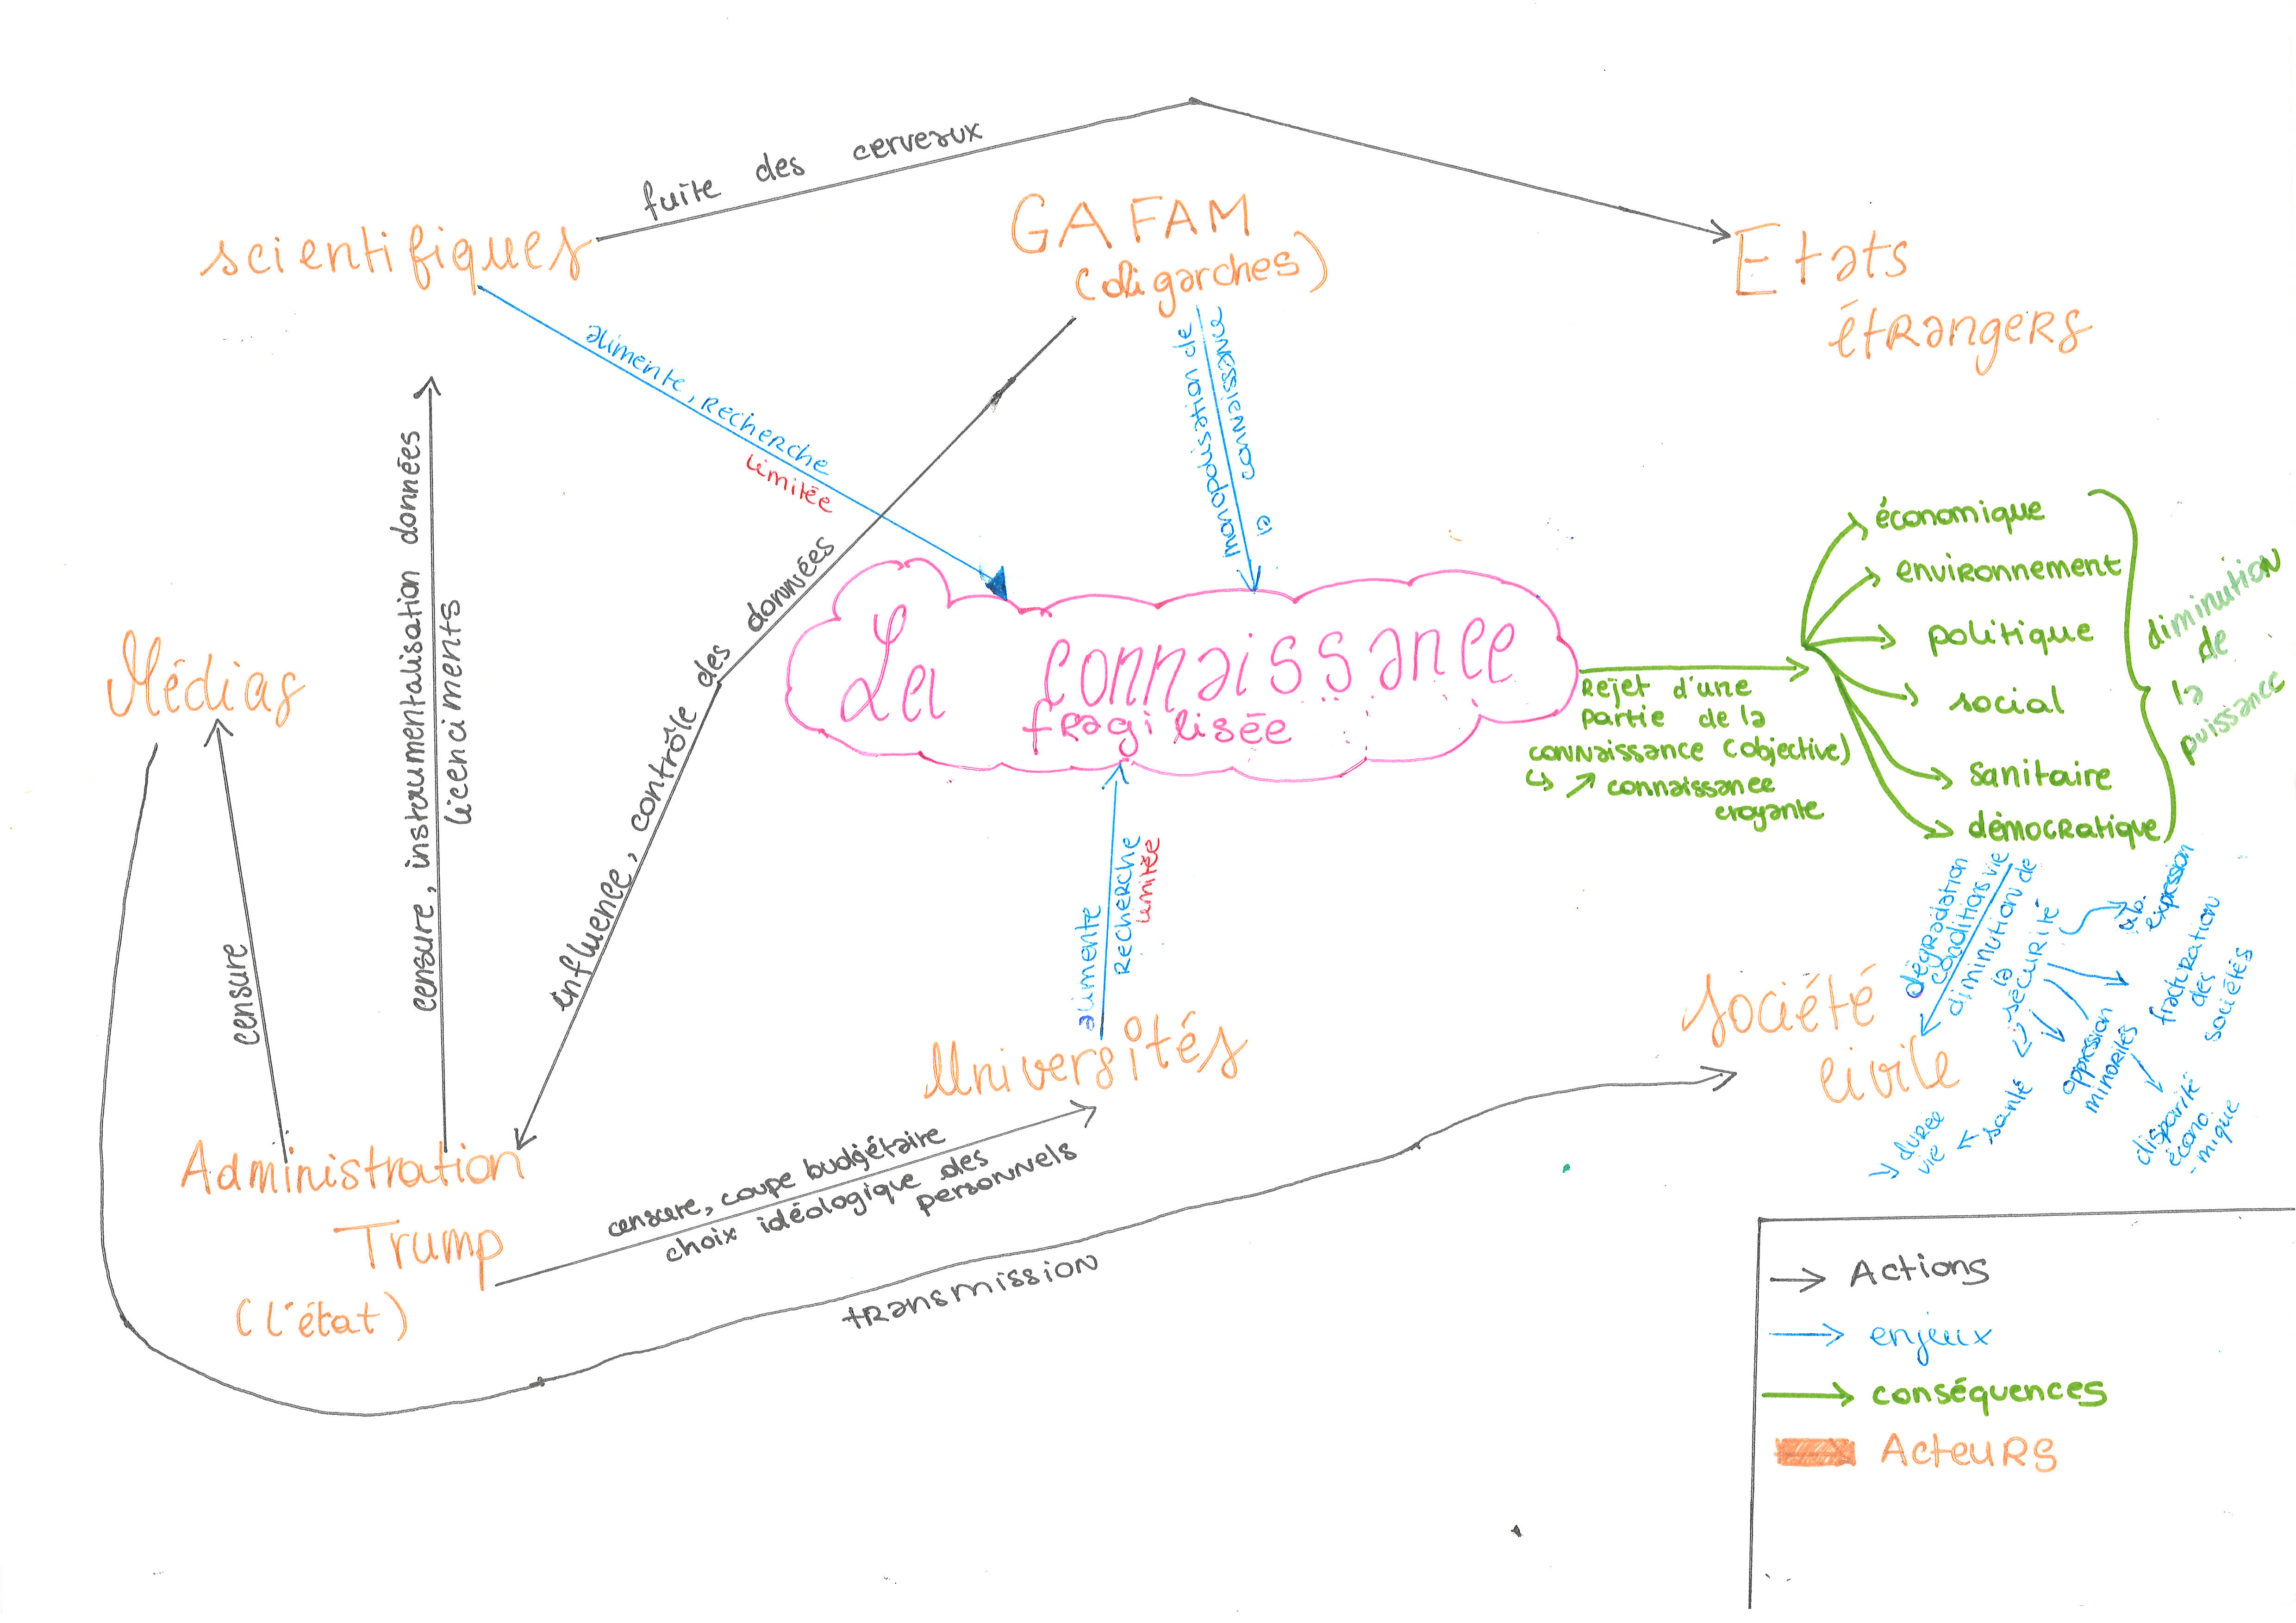 fuite des cerveaux
scientifiques
GAFAM
(oligarches)
Etats
étrangers
alimente, recherche
limitée
monopolisation de
la connaissance
censure, instrumentalisation données
licenciments
influence, contrôle des données
Médias
censure
La connaissance
fragilisée
Rejet d'une
partie de la
connaissance (objective)
↳ ↗ connaissance
croyante
économique
environnement
politique
social
sanitaire
démocratique
diminution
de
la
puissance
alimente
recherche
limitée
Universités
société
civile
dégradation
conditions vie
diminution de
la
sécurité
lib.
expression
fracturation
des
sociétés
oppression
minorités
disparité
écono
-mique
santé
↘ durée
vie
Administration
Trump
(l'état)
censure, coupe budgétaire
choix idéologique des
personnels
transmission
Actions
enjeux
conséquences
Acteurs